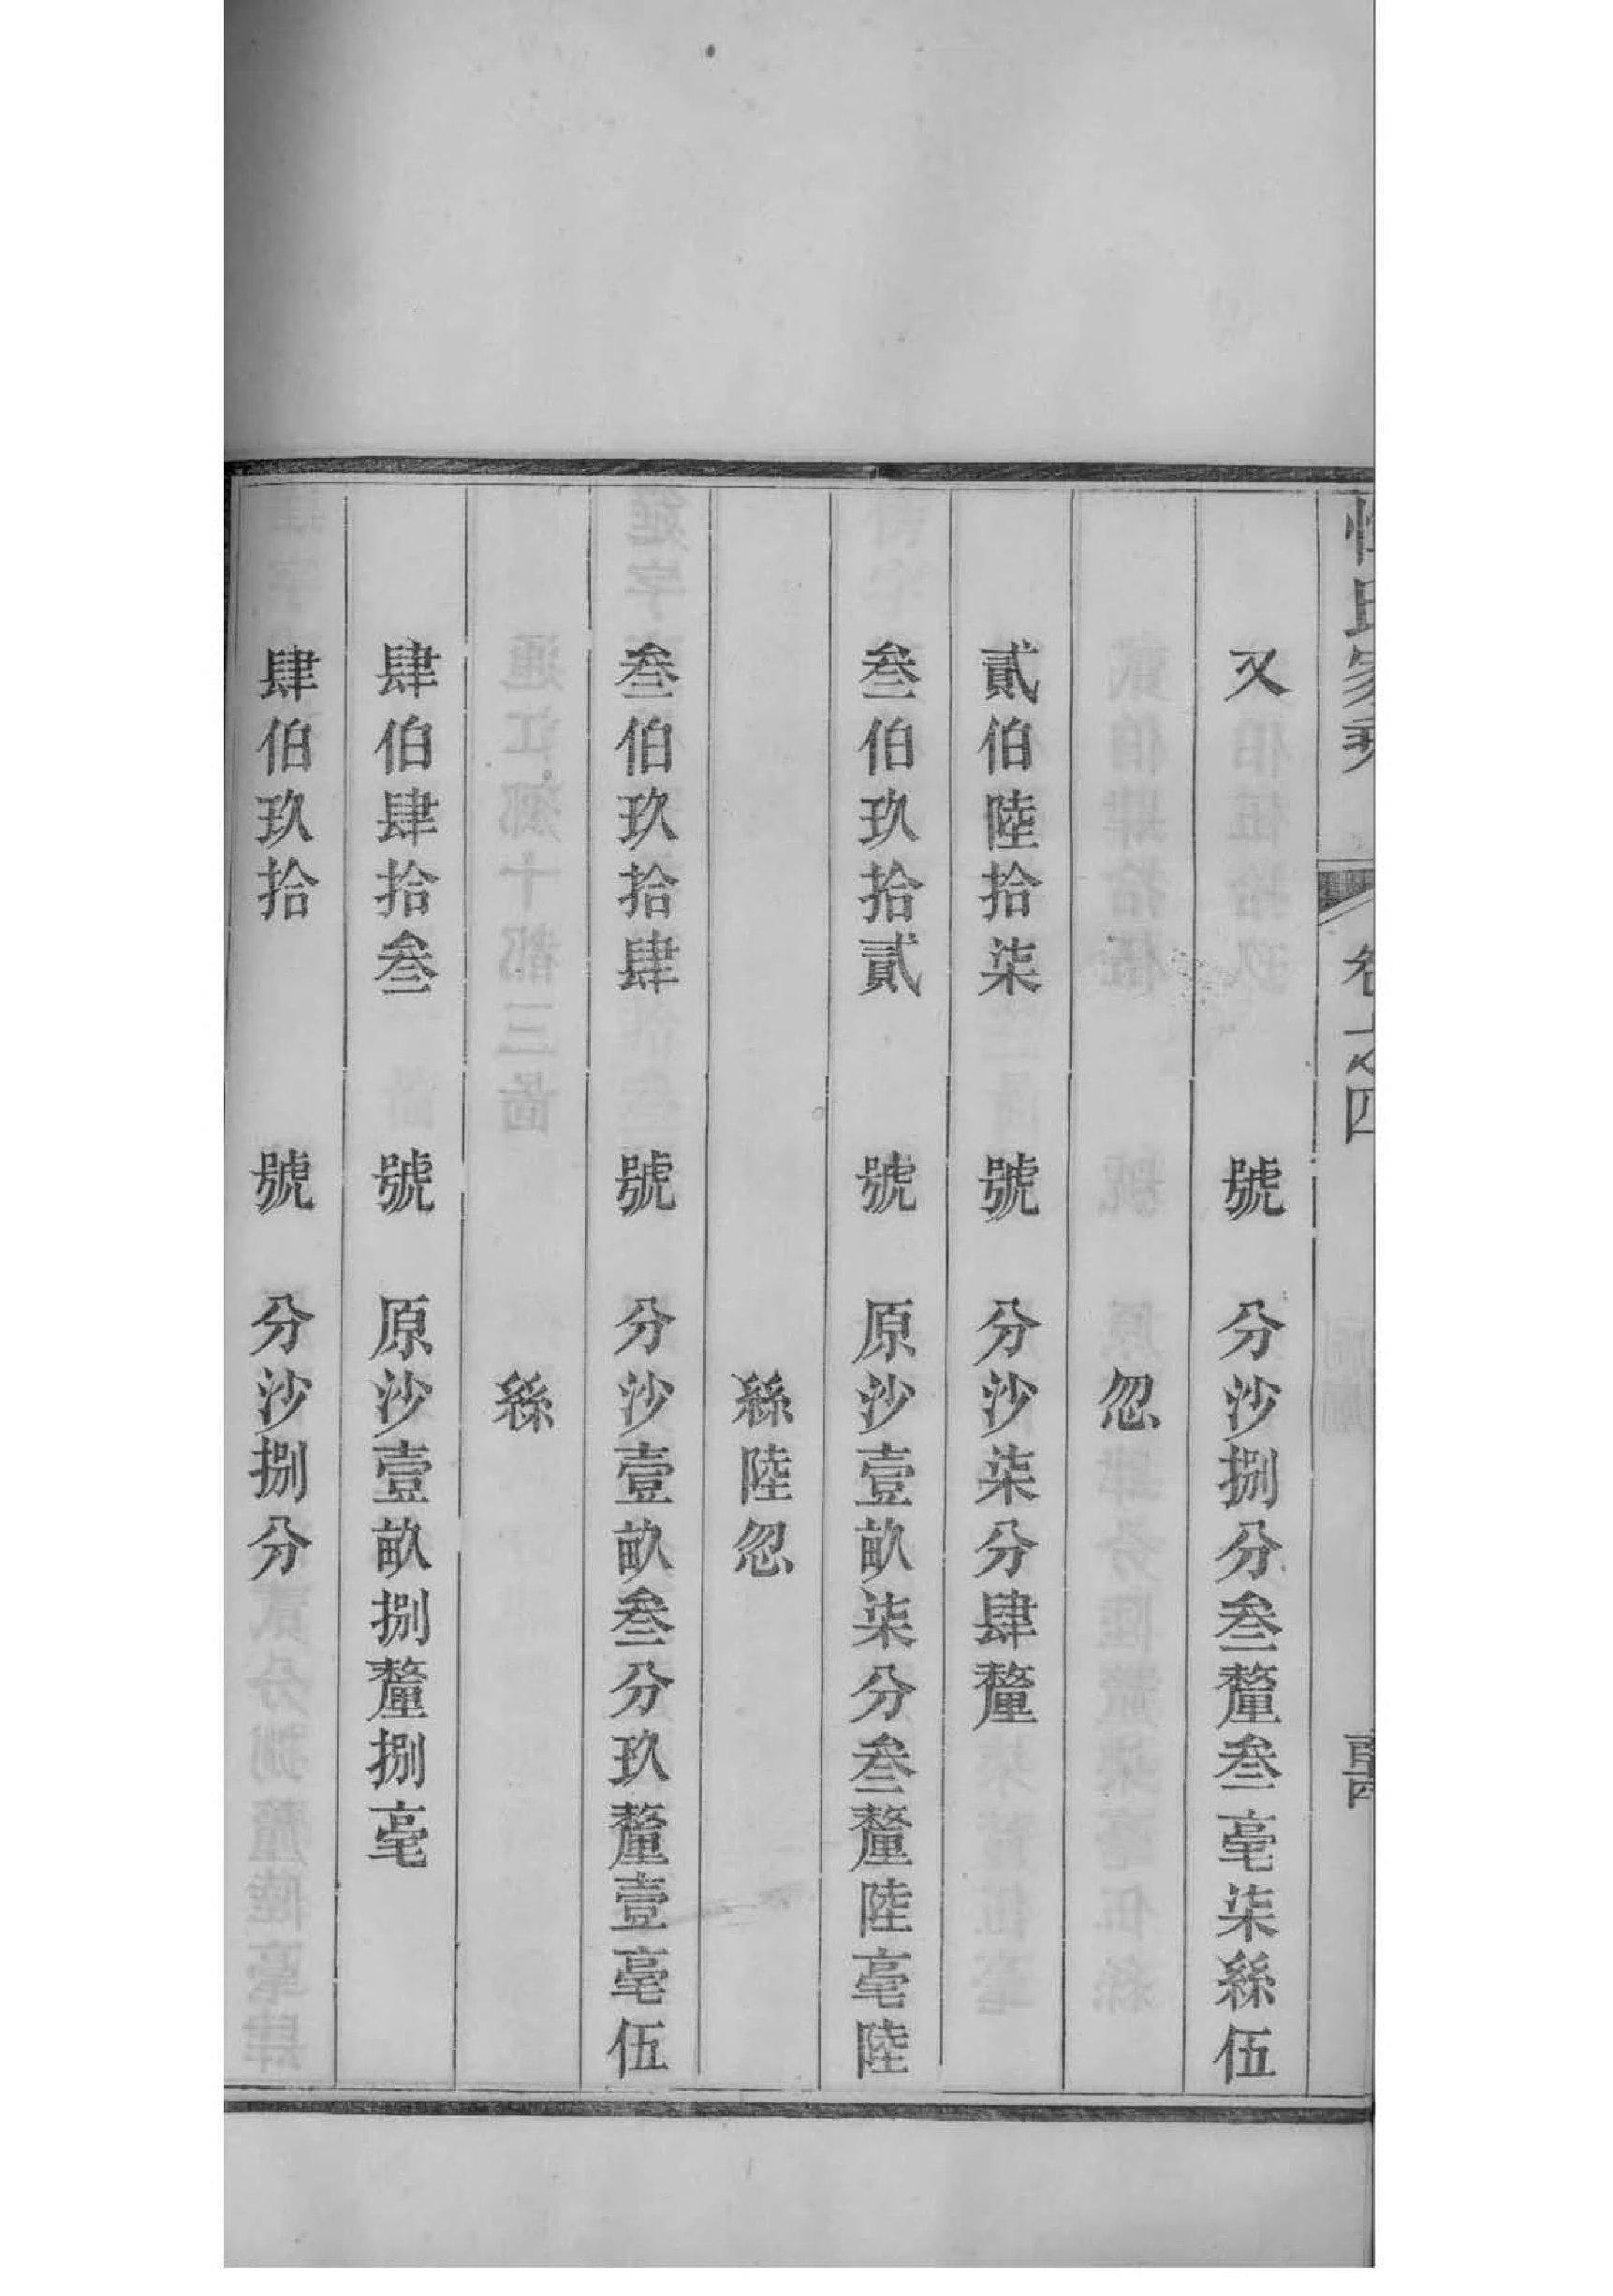 氏家乘 卷 之四
又 號 分沙捌分叁釐叁毫柒絲伍
忽
貳伯陸拾柒 號 分沙柒分肆釐
叁伯玖拾貳 號 原沙壹畝柒分叁釐陸毫陸
絲陸忽
叁伯玖拾肆 號 分沙壹畝叁分玖釐壹毫伍
絲
肆伯肆拾叁 號 原沙壹畝捌釐捌毫
肆伯玖拾 號 分沙捌分